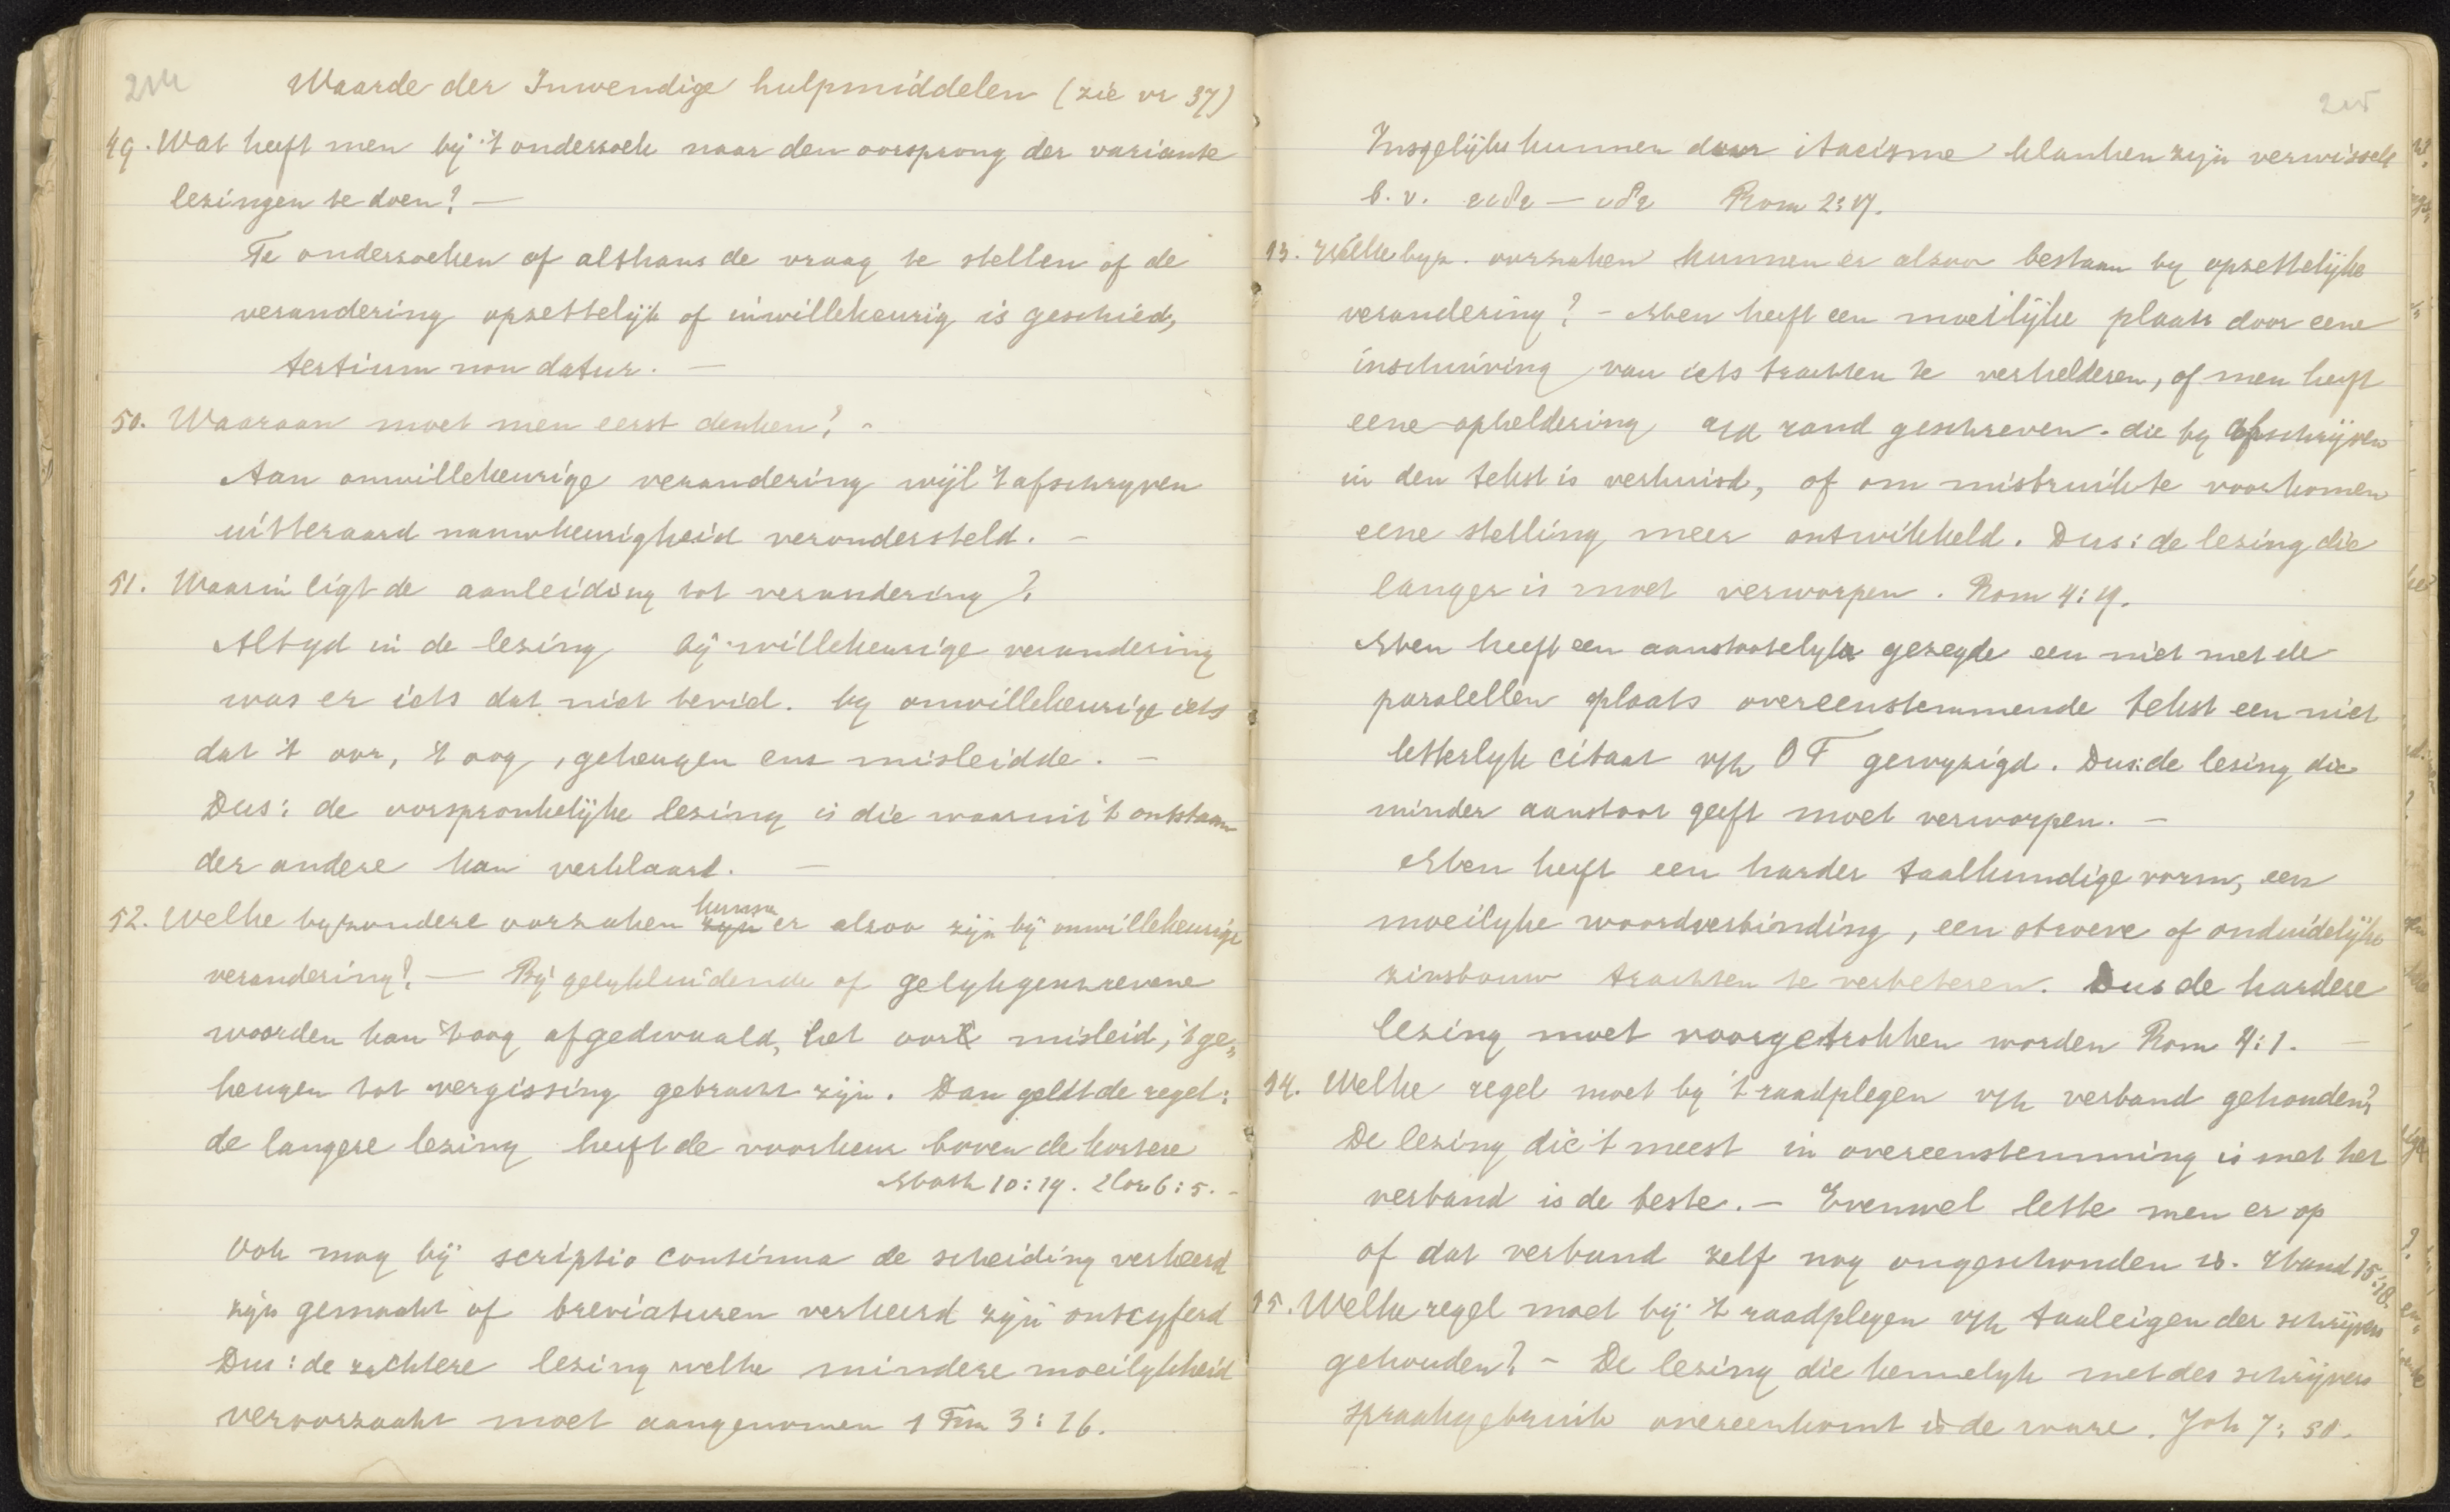 214
Waarde der Inwendige hulpmiddelen (zie vr 37)
49. Wat heeft men bij 't onderzoek naar den oorsprong der variante
lezingen te doen? —
Te onderzoeken of althans de vraag te stellen of de
verandering opzettelijk of inwillekeurig is geschied,
tertium non datur. —
50. Waaraan moet men eerst denken? -
Aan onwillekeurige verandering wijl 't afschryven
uitteraard nauwkeurigheid verondersteld. -
51. Waarin ligt de aanleiding tot verandering?
Altyd in de lezing bij willekeurige verandering
was er iets dat niet beviel. by onwillekeurige iets
dat 't oor, 't oog, geheugen enz misleidde. -
Dus: de oorspronkelijke lezing is die waaruit 't ontstaan
der andere kan verklaard. —
52. Welke byzondere oorzaken kunnen er alzoo zijn bij onwillekeurige
verandering? — Bij gelykluidende of gelykgeschrevene
woorden kan 't oog afgedwaald, het oor misleid, 't ge„
heugen tot vergissing gebracht zijn. Dan geldt de regel:
de langere lezing heeft de voorkeur boven de kortere
Math 10:19. 2 Cor 6:5. -
Ook mag bij scriptio continua de scheiding verkeerd
zijn gemaakt of breviaturen verkeerd zijn ontcyferd
Dus: de zachtere lezing welke mindere moeilykheid
veroorzaakt moet aangenomen 1 Tim 3:16.
215
Insgelijks kunnen door itacisme klanken zijn verwisseld
b.v. ειδε — ιδε Rom 2:17.
53. Welke byz. oorzaken kunnen er alzoo bestaan by opzettelijke
verandering? - Men heeft een moeilijke plaats door eene
inschuiving van iets trachten te verhelderen, of men heeft
eene opheldering a/d rand geschreven. die by afschrijven
in den tekst is verhuisd, of om misbruik te voorkomen
eene stelling meer ontwikkeld. Dus: de lezing die
langer is moet verworpen. Rom 4:19.
Men heeft een aanstootelyk gezegde een niet met de
paralellen plaats overeenstemmende tekst een niet
letterlyk citaat v/h OT gewyzigd. Dus: de lezing die
minder aanstoot geeft moet verworpen. —
Men heeft een harder taalkundige vorm, een
moeilyke woordverbinding, een stroeve of onduidelijke
zinsbouw trachten te verbeteren. Dus de hardere
lezing moet voorgetrokken worden Rom 4:1. —
54. Welke regel moet by 't raadplegen v/h verband gehouden?
De lezing die 't meest in overeenstemming is met het
verband is de beste. — Evenwel lette men er op
of dat verband zelf nog ongeschonden is. Hand 15:18.
55. Welke regel moet bij 't raadplegen v/h taaleigen der schrijvers
gehouden? - De lezing die kennelyk met des schrijvers
spraakgebruik overeenkomt is de ware. Joh 7:50.